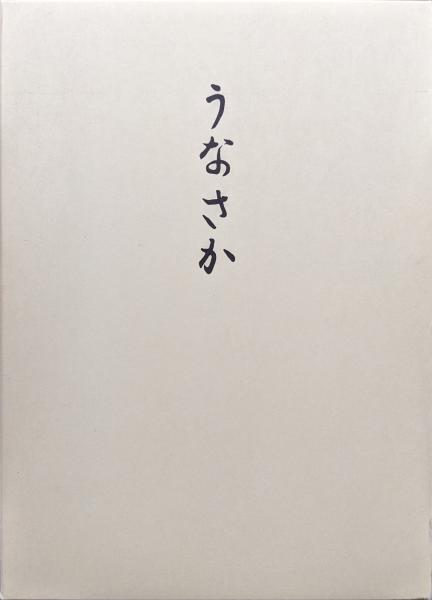 うなさか